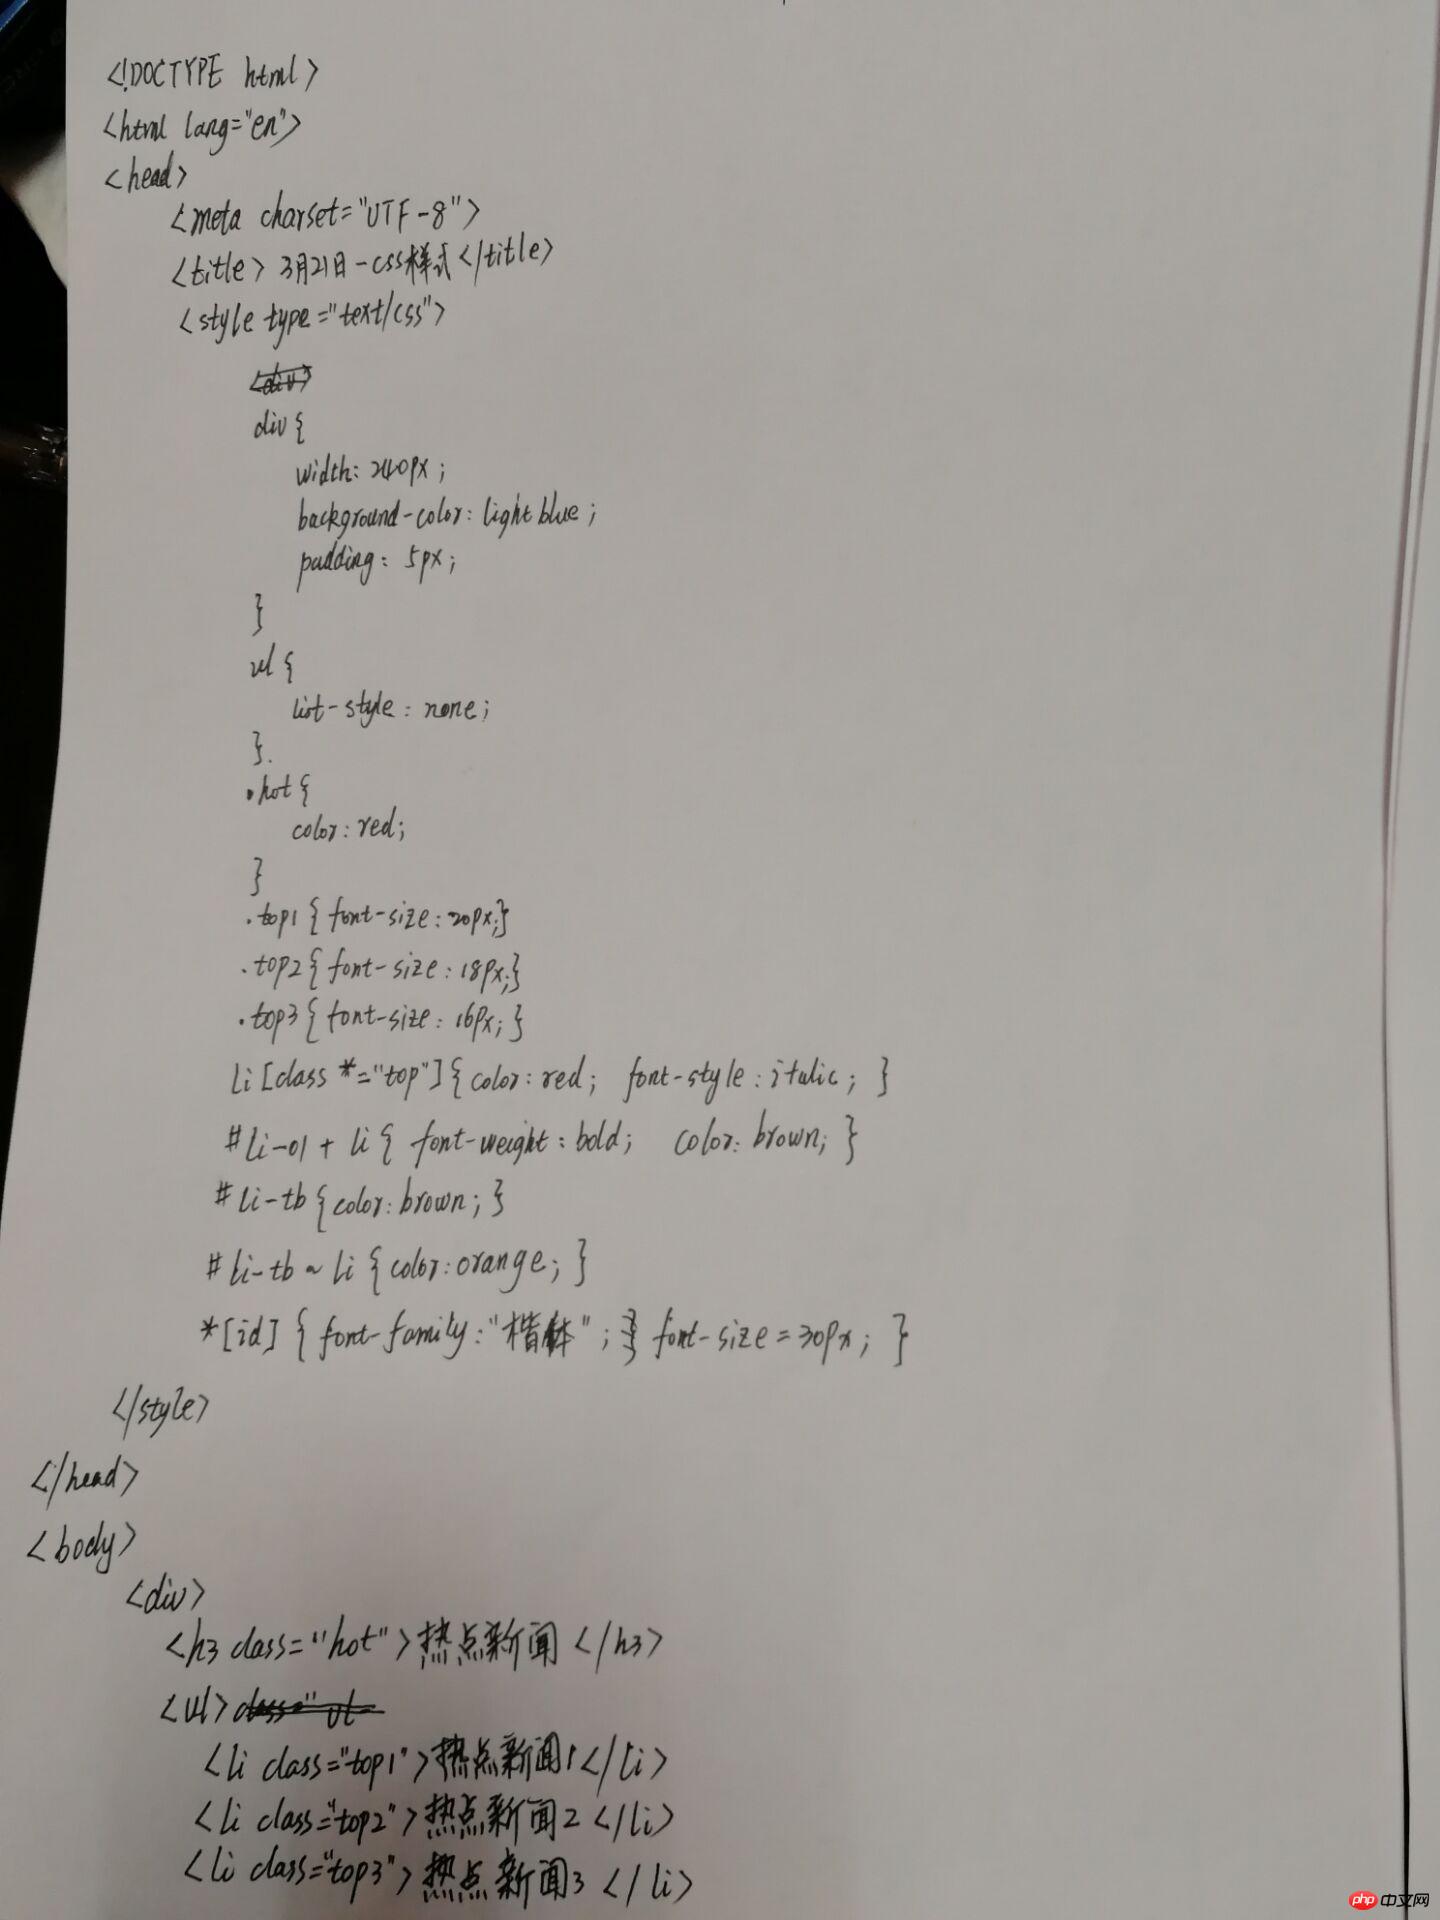 <!DOCTYPE html>
<html lang="en">
<head>
<meta charset="UTF-8">
<title>3月21日-css样式</title>
<style type="text/css">
<div>
div{
width: 240px;
background-color: lightblue;
padding: 5px;
}
ul{
list-style: none;
}.
.hot{
color: red;
}
.top1{font-size: 20px;}
.top2{font-size: 18px;}
.top3{font-size: 16px;}
li[class *="top"]{color: red; font-style: italic; }
#li-01 + li{ font-weight: bold; color: brown; }
#li-tb{color: brown; }
#li-tb ~ li{color: orange; }
*[id] { font-family: "楷体"; } font-size = 30px; }
</style>
</head>
<body>
<div>
<h3 class="hot">热点新闻</h3>
<ul>class="ul
<li class="top1">热点新闻1</li>
<li class="top2">热点新闻2</li>
<li class="top3">热点新闻3</li>
php中文网